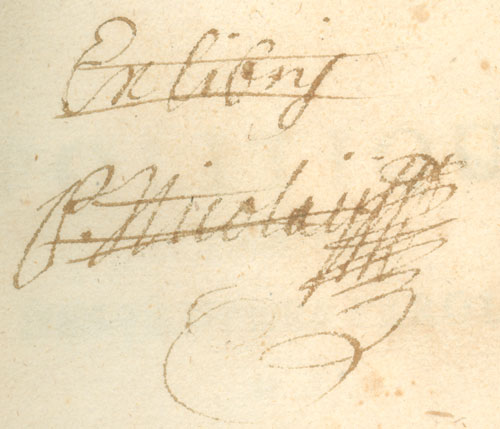 Ex libris
P. Nicolaij